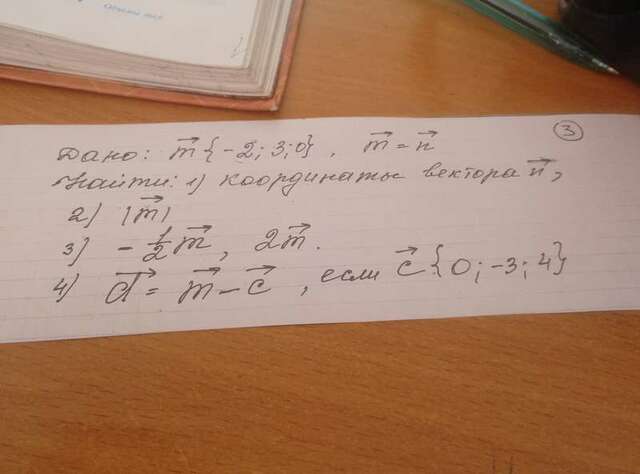 ③
Дано: m⃗ {-2; 3; 0}, m⃗ = n⃗
Найти: 1) координаты вектора n⃗,
2) |m⃗|
3) -1/2 m⃗, 2m⃗.
4) d⃗ = m⃗ - c⃗, если c⃗ {0; -3; 4}